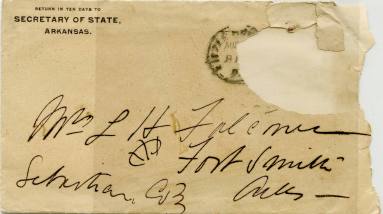 RETURN IN TEN DAYS TO
SECRETARY OF STATE,
ARKANSAS.
Mrs L H Falconer
Fort Smith
Sebastian Co Ark